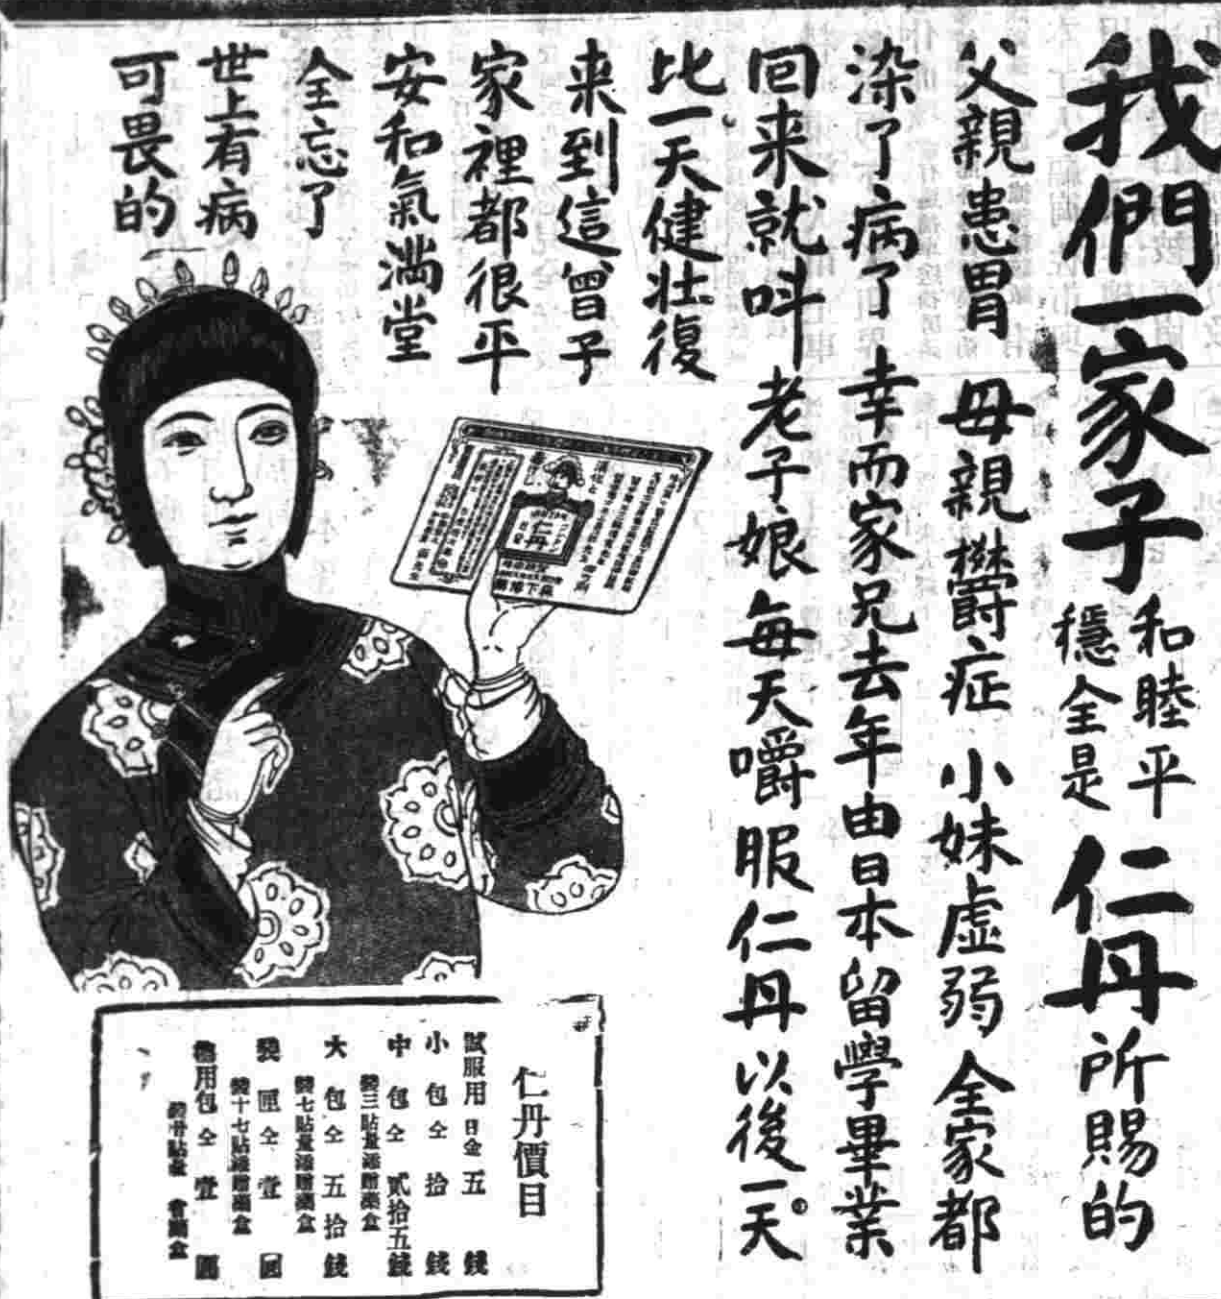 我們一家子和睦平穩全是仁丹所賜的
父親患胃 母親欝症 小妹虛弱 全家都
染了病了 幸而家兄去年由日本留學畢業
回来就呌 老子娘 每天嚼服仁丹以後一天
比一天健壯復
来到這曾子
家裡都很平
安和氣滿堂
全忘了
世上有病
可畏的
仁丹
仁丹價目
試服用 日金 五 錢
小包仝 拾 錢
中包仝 貳拾五錢
裝三貼並添贈藥盒
大包仝 五拾錢
裝七貼並添贈藥盒
匣仝 壹 圓
裝十七貼並添贈藥盒
用包仝 壹 圓